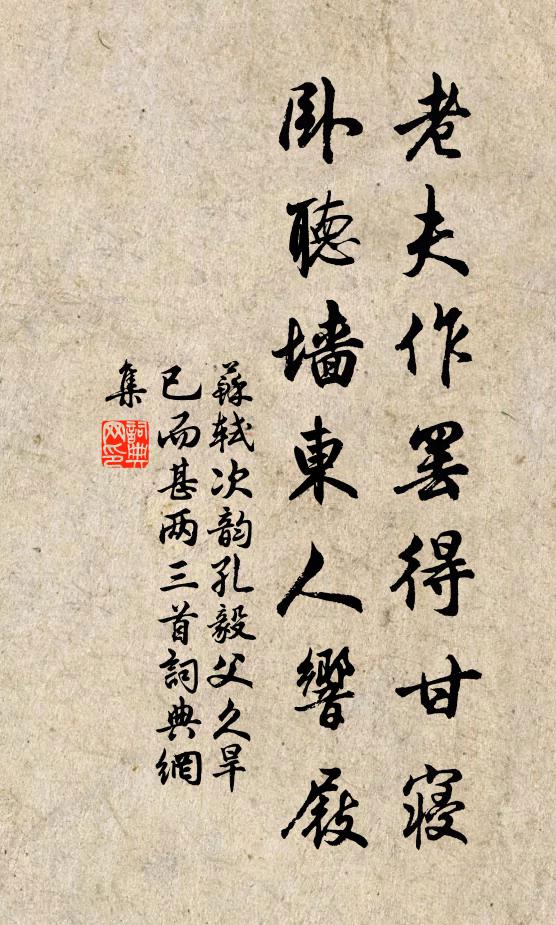 老夫作罢得甘寝
卧聽墙東人響屐
蘇軾次韵孔毅父久旱
已而甚两三首詞典網
集
詞典
网印